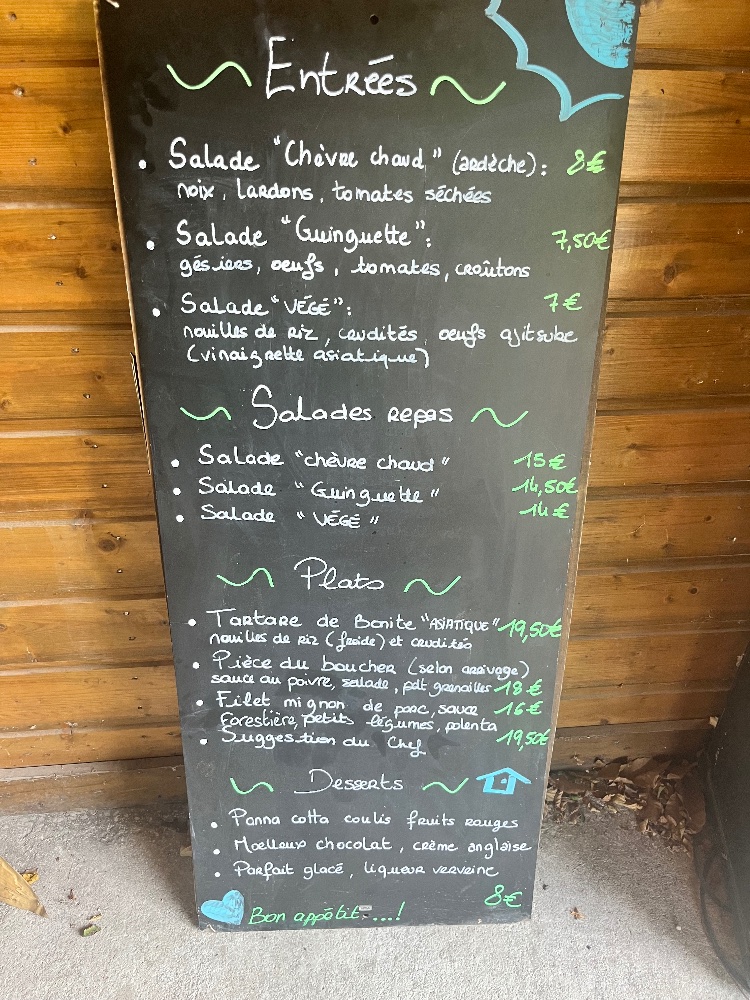 Entrées
• Salade "Chèvre chaud" (ardèche): 8€
noix, lardons, tomates séchées
• Salade "Guinguette": 7,50€
gésiers, oeufs, tomates, croûtons
• Salade "VÉGÉ": 7€
nouilles de riz, crudités, oeufs ajitsuke
(vinaigrette asiatique)
Salades repas
• Salade "chèvre chaud" 15€
• Salade "Guinguette" 14,50€
• Salade "VÉGÉ" 14€
Plats
• Tartare de Bonite "ASIATIQUE" 19,50€
nouilles de riz (froide) et crudités
• Pièce du boucher (selon arrivage)
sauce au poivre, salade, pdt grenailles 18€
• Filet mignon de porc, sauce 16€
forestière, petits légumes, polenta
• Suggestion du Chef 19,50€
Desserts
• Panna cotta coulis fruits rouges
• Moelleux chocolat, crème anglaise
• Parfait glacé, liqueur verveine
Bon appétit....! 8€